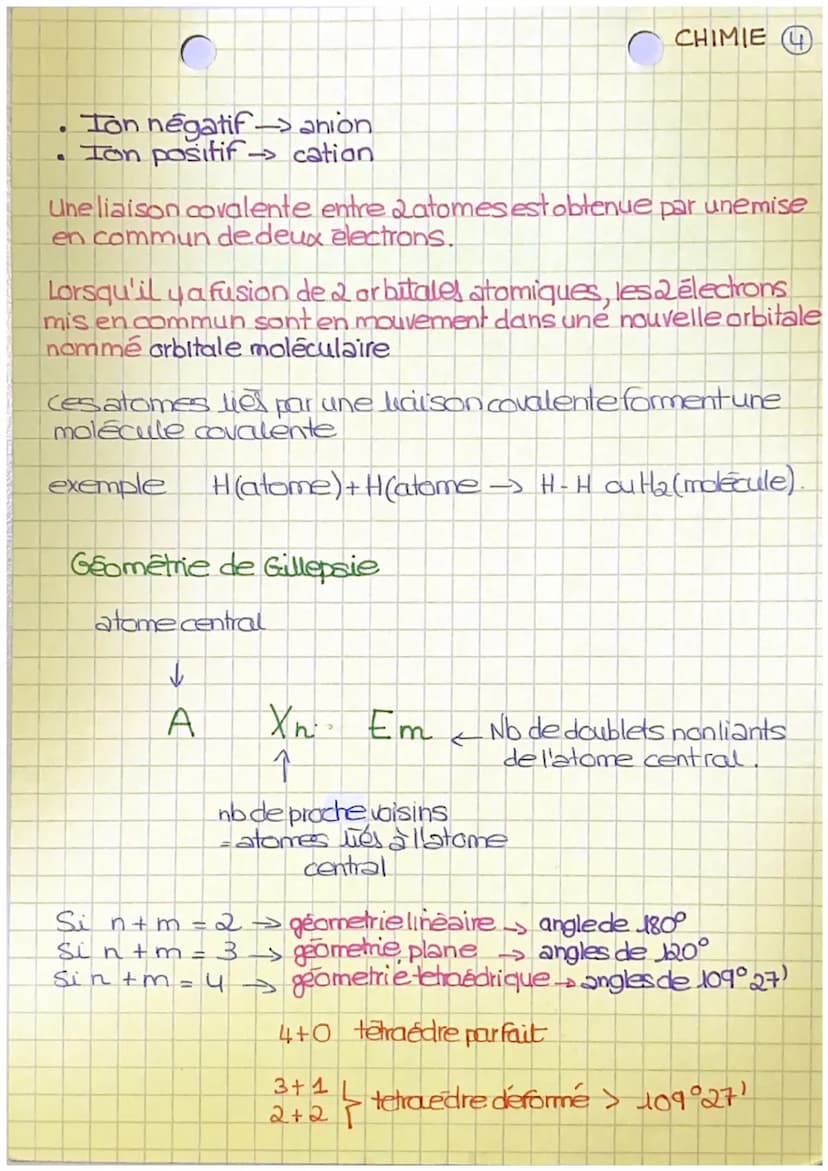 CHIMIE 4
• Ion négatif → anion
• Ion positif → cation
Une liaison covalente entre 2 atomes est obtenue par une mise
en commun de deux électrons.
Lorsqu'il y a fusion de 2 orbitales atomiques, les 2 électrons
mis en commun sont en mouvement dans une nouvelle orbitale
nommé orbitale moléculaire
Ces atomes liés par une liaison covalente forment une
molécule covalente
exemple H(atome)+H(atome → H-H ou H2(molécule).
Géométrie de Gillepsie
atome central
↓
A Xn Em ← Nb de doublets nonliants
de l'atome central.
↑
nb de proche voisins
= atomes liés à l'atome
central
Si n+m = 2 → géometrie linéaire → angle de 180°
Si n+m = 3 → géometrie plane → angles de 120°
Si n+m = 4 → géometrie tetraédrique → angles de 109°27'
4+0 tétraédre parfait
3+1
2+2 } tetraedre déformé > 109°27'